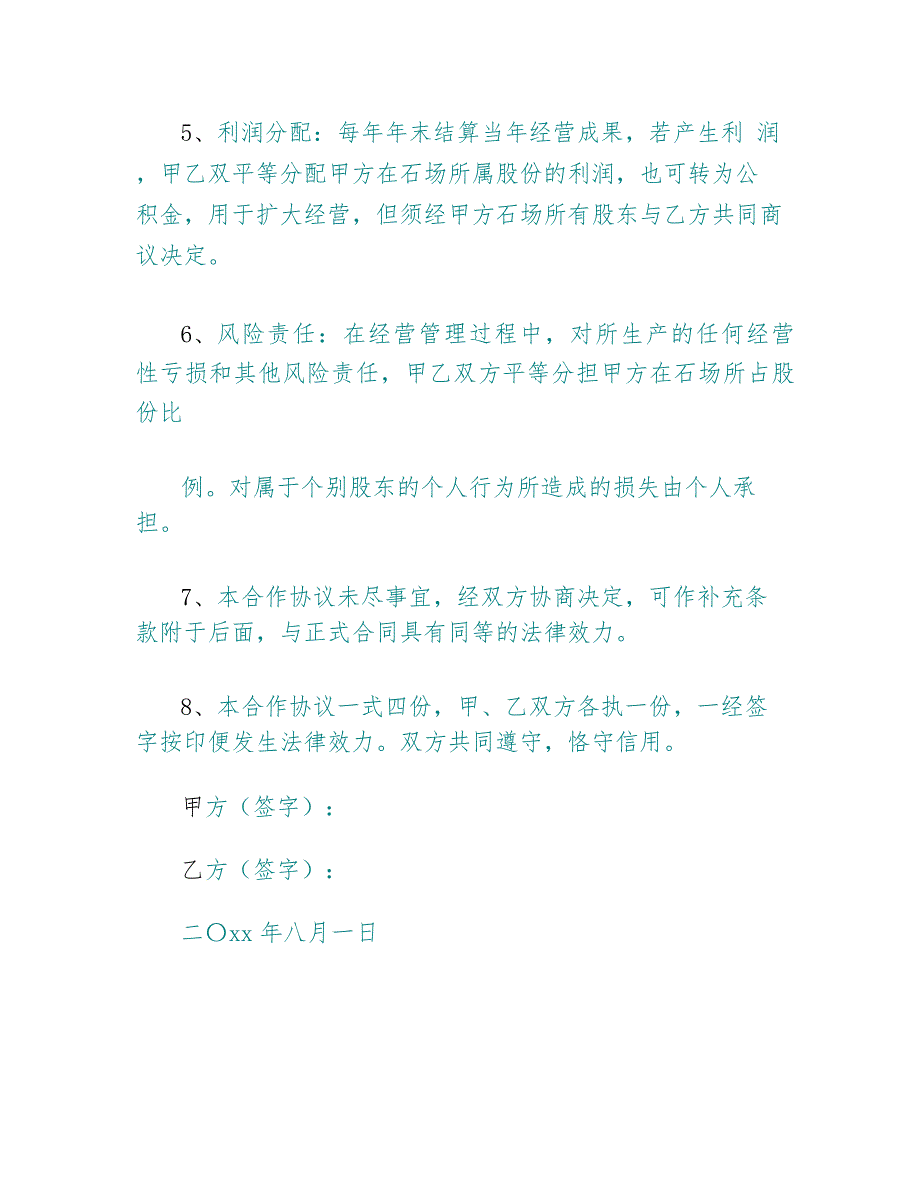 5、利润分配：每年年末结算当年经营成果，若产生利 润
，甲乙双平等分配甲方在石场所属股份的利润，也可转为公
积金，用于扩大经营，但须经甲方石场所有股东与乙方共同商
议决定。
6、风险责任：在经营管理过程中，对所生产的任何经营
性亏损和其他风险责任，甲乙双方平等分担甲方在石场所占股
份比
例。对属于个别股东的个人行为所造成的损失由个人承
担。
7、本合作协议未尽事宜，经双方协商决定，可作补充条
款附于后面，与正式合同具有同等的法律效力。
8、本合作协议一式四份，甲、乙双方各执一份，一经签
字按印便发生法律效力。双方共同遵守，恪守信用。
甲方（签字）：
乙方（签字）：
二〇xx 年八月一日